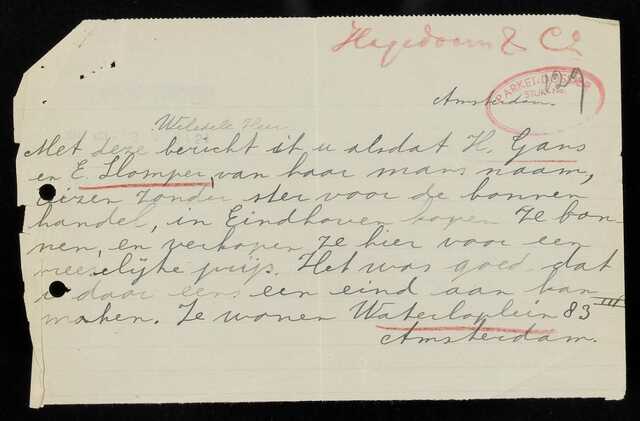 Hagedoorn & Co
PARKET-DOSSIER
STUK No. 127
Amsterdam.
Weledele Heer
Met deze bericht ik u alsdat H. Gans
en E. Slomper, van haar mans naam,
reizen zonder ster voor de bonnen
handel, in Eindhoven kopen ze bon-
nen, en verkopen ze hier voor een
vreeselijke prijs. Het was goed dat
u daar eens een eind aan kan
maken. Ze wonen Waterloplein 83 III
Amsterdam.